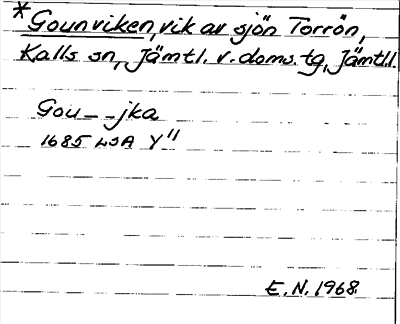 * Gounviken, vik av sjön Torrön,
Kalls sn, Jämtl. v. doms.tg, Jämtl.l.
Gou_ _jka
1685 LSA Y"
E.N. 1968